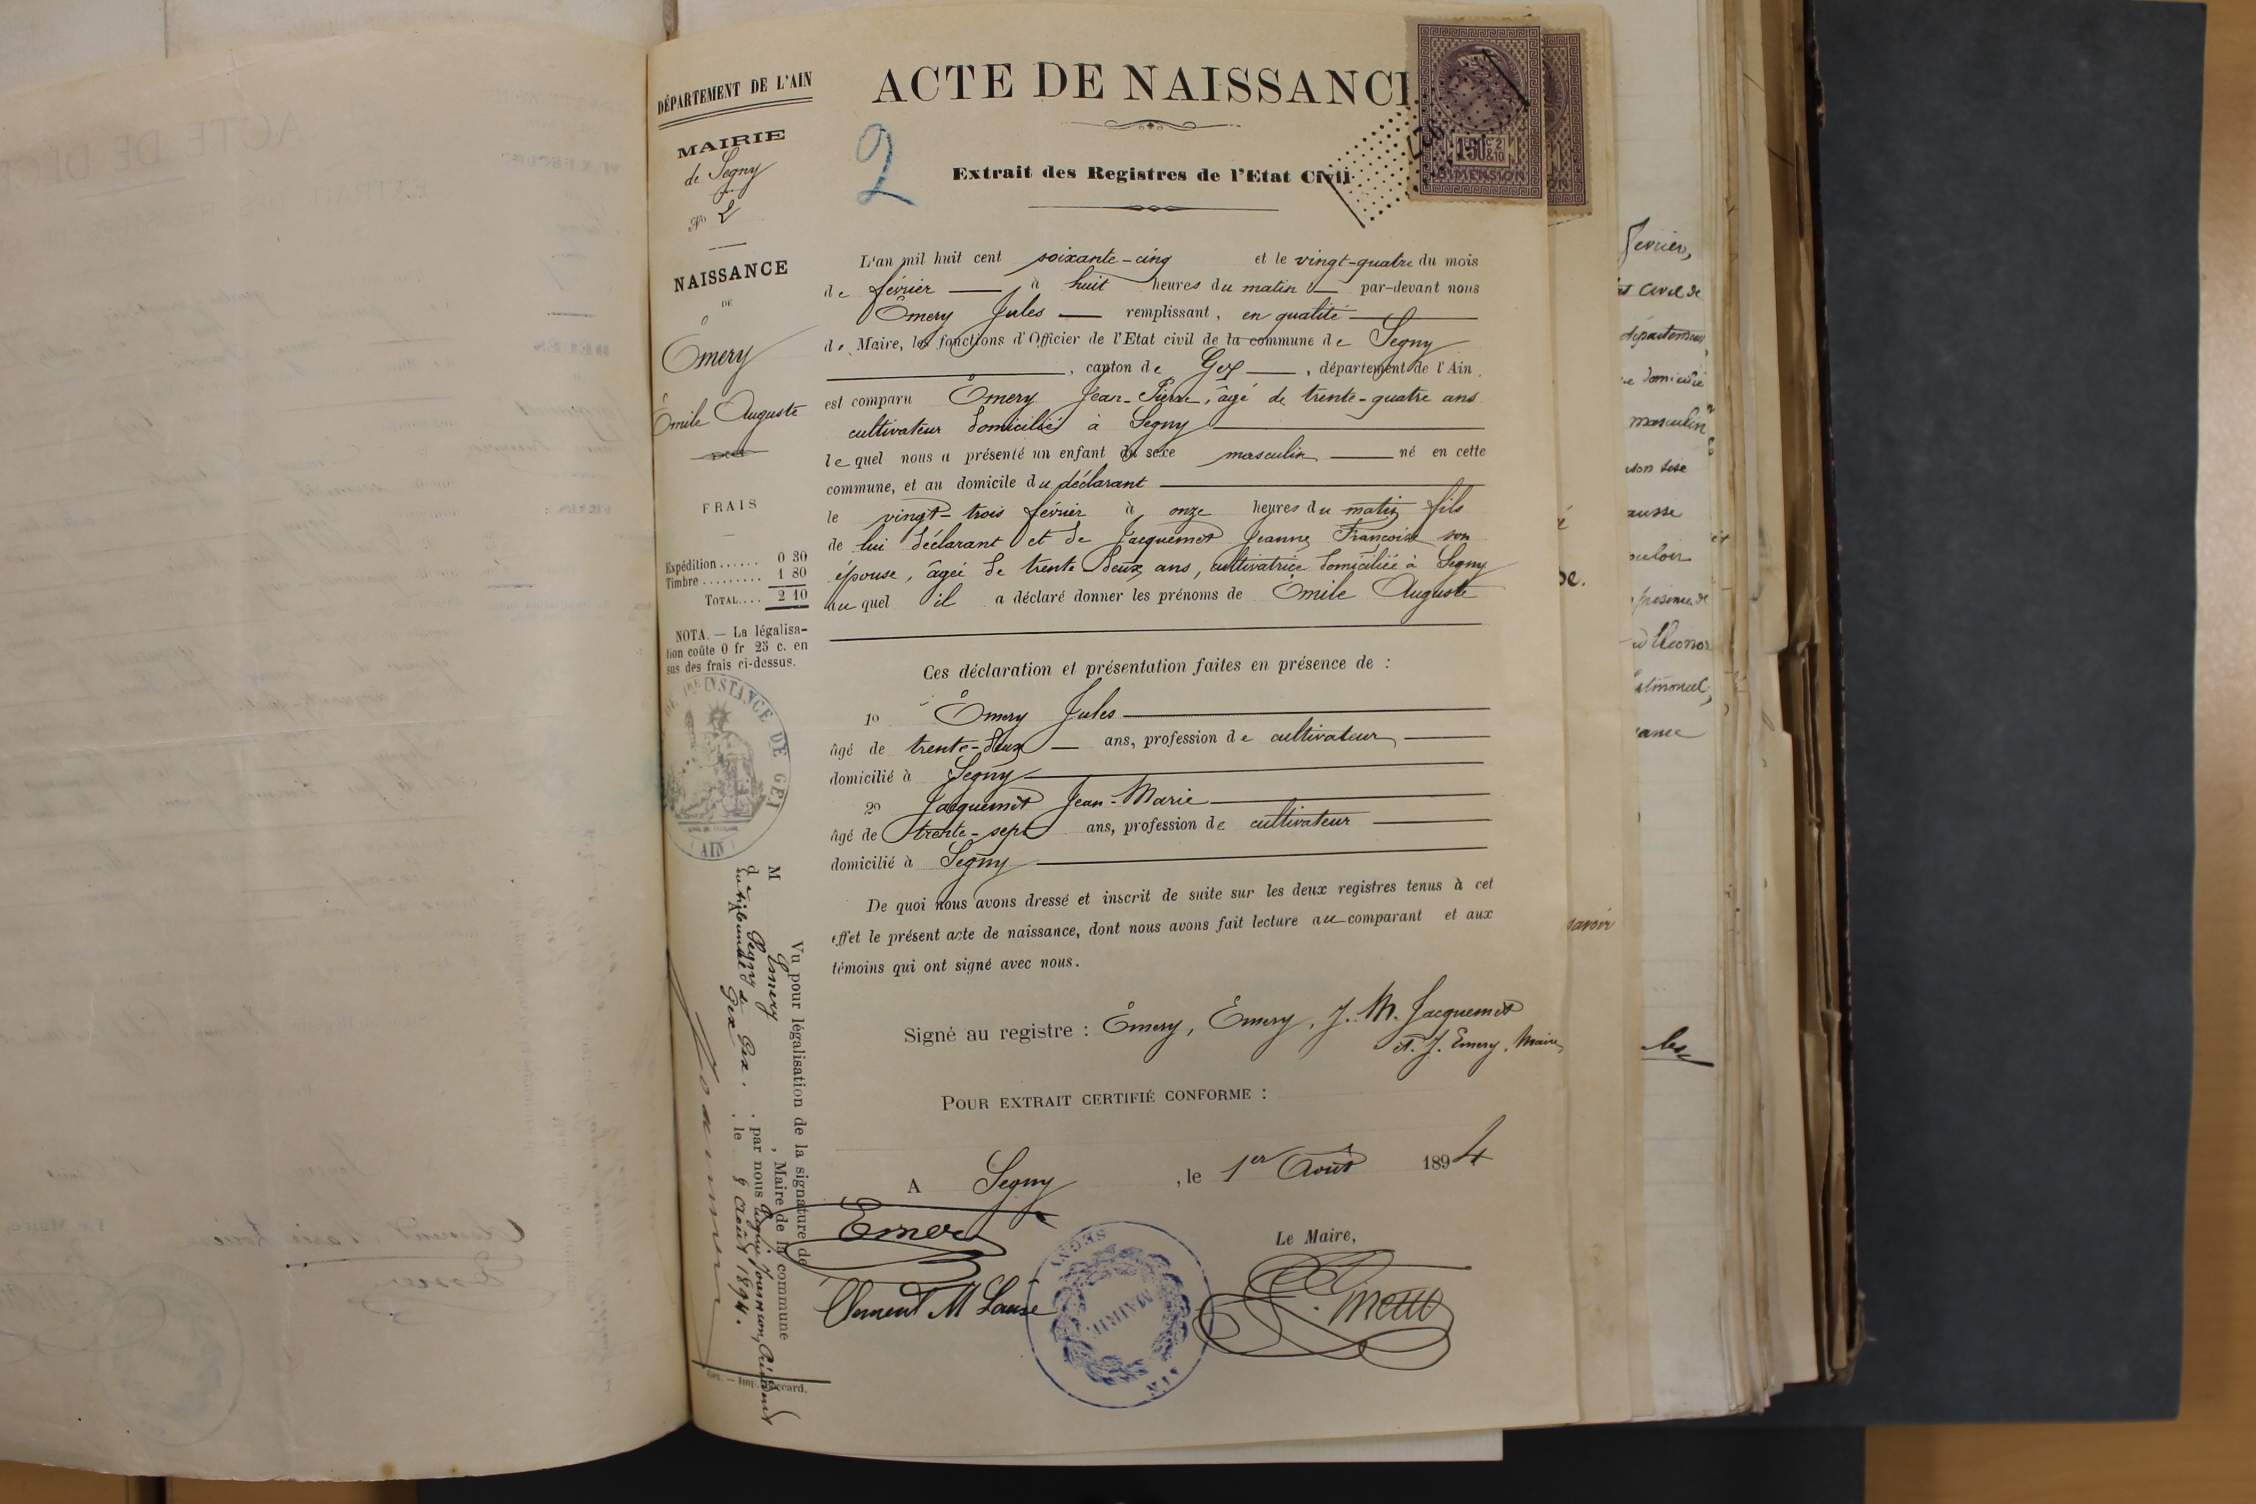 DÉPARTEMENT DE L'AIN
MAIRIE
de Segny
No 2
NAISSANCE
DE
Émery
Émile Auguste
FRAIS
Expédition ...... 0 30
Timbre ......... 1 80
TOTAL.... 2 10
NOTA. — La légalisa-
tion coûte 0 fr 25 c. en
sus des frais ci-dessus.
INSTANCE DE GEX
(AIN)
Vu pour légalisation de la signature de
M Emery, Maire de la commune
de Segny par nous
au tribunal de Gex.
A Gex, le 8 Août 1894.
ACTE DE NAISSANC
2
Extrait des Registres de l'Etat Civil
150
2
&10
DIMENSION
L'an mil huit cent soixante-cinq et le vingt-quatre du mois
de février — à huit heures du matin — par-devant nous
Émery Jules — remplissant, en qualité
de Maire, les fonctions d'Officier de l'Etat civil de la commune de Segny
, canton de Gex —, département de l'Ain
est comparu Émery Jean-Pierre, âgé de trente-quatre ans
cultivateur domicilié à Segny
lequel nous a présenté un enfant du sexe masculin — né en cette
commune, et au domicile du déclarant
le vingt-trois février à onze heures du matin fils
de lui déclarant et de Jacquemet Jeanne Françoise son
épouse, âgée de trente deux ans, cultivatrice domiciliée à Segny
auquel il a déclaré donner les prénoms de Émile Auguste
Ces déclaration et présentation faites en présence de :
1o Émery Jules
âgé de trente-deux — ans, profession de cultivateur
domicilié à Segny
2o Jacquemet Jean-Marie
âgé de trente-sept ans, profession de cultivateur
domicilié à Segny
De quoi nous avons dressé et inscrit de suite sur les deux registres tenus à cet
effet le présent acte de naissance, dont nous avons fait lecture au comparant et aux
témoins qui ont signé avec nous.
Signé au registre : Émery, Émery, J. M. Jacquemet
et J. Emery, Maire
POUR EXTRAIT CERTIFIÉ CONFORME :
A Segny, le 1er Août 1894
Le Maire,
Emery
Clement M Louise
SEGNY
MAIRIE
AIN
février,
département
masculin
savoir